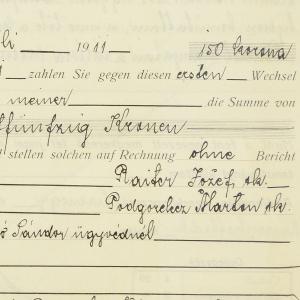 li 1911 150 Korona
zahlen Sie gegen diesen ersten Wechsel
meiner die Summe von
fünfzig Kronen
stellen solchen auf Rechnung ohne Bericht
Raiter József sk.
Podgorelecz Márton sk.
ó Sándor ügyvédnél